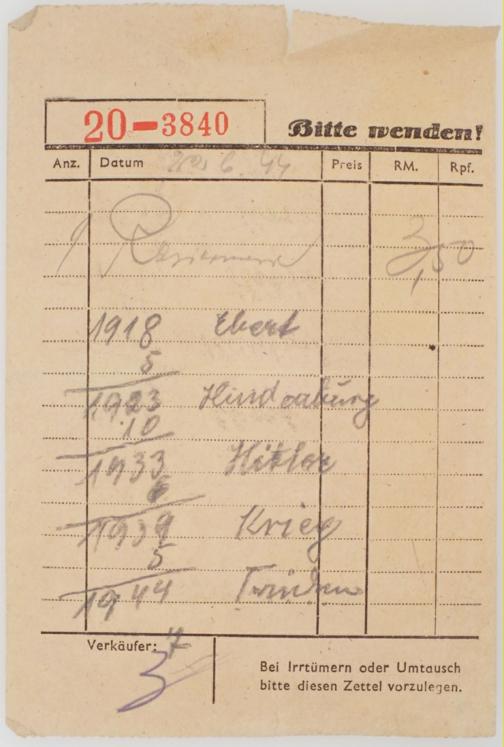 20-3840
Bitte wenden!
Anz. Datum 6. 44 Preis RM. Rpf.
1 3,50
1918 Ebert
5
1923 Hindenburg
10
1933 Hitler
6
1939 Krieg
5
1944 Frieden
Verkäufer: 7
3
Bei Irrtümern oder Umtausch
bitte diesen Zettel vorzulegen.